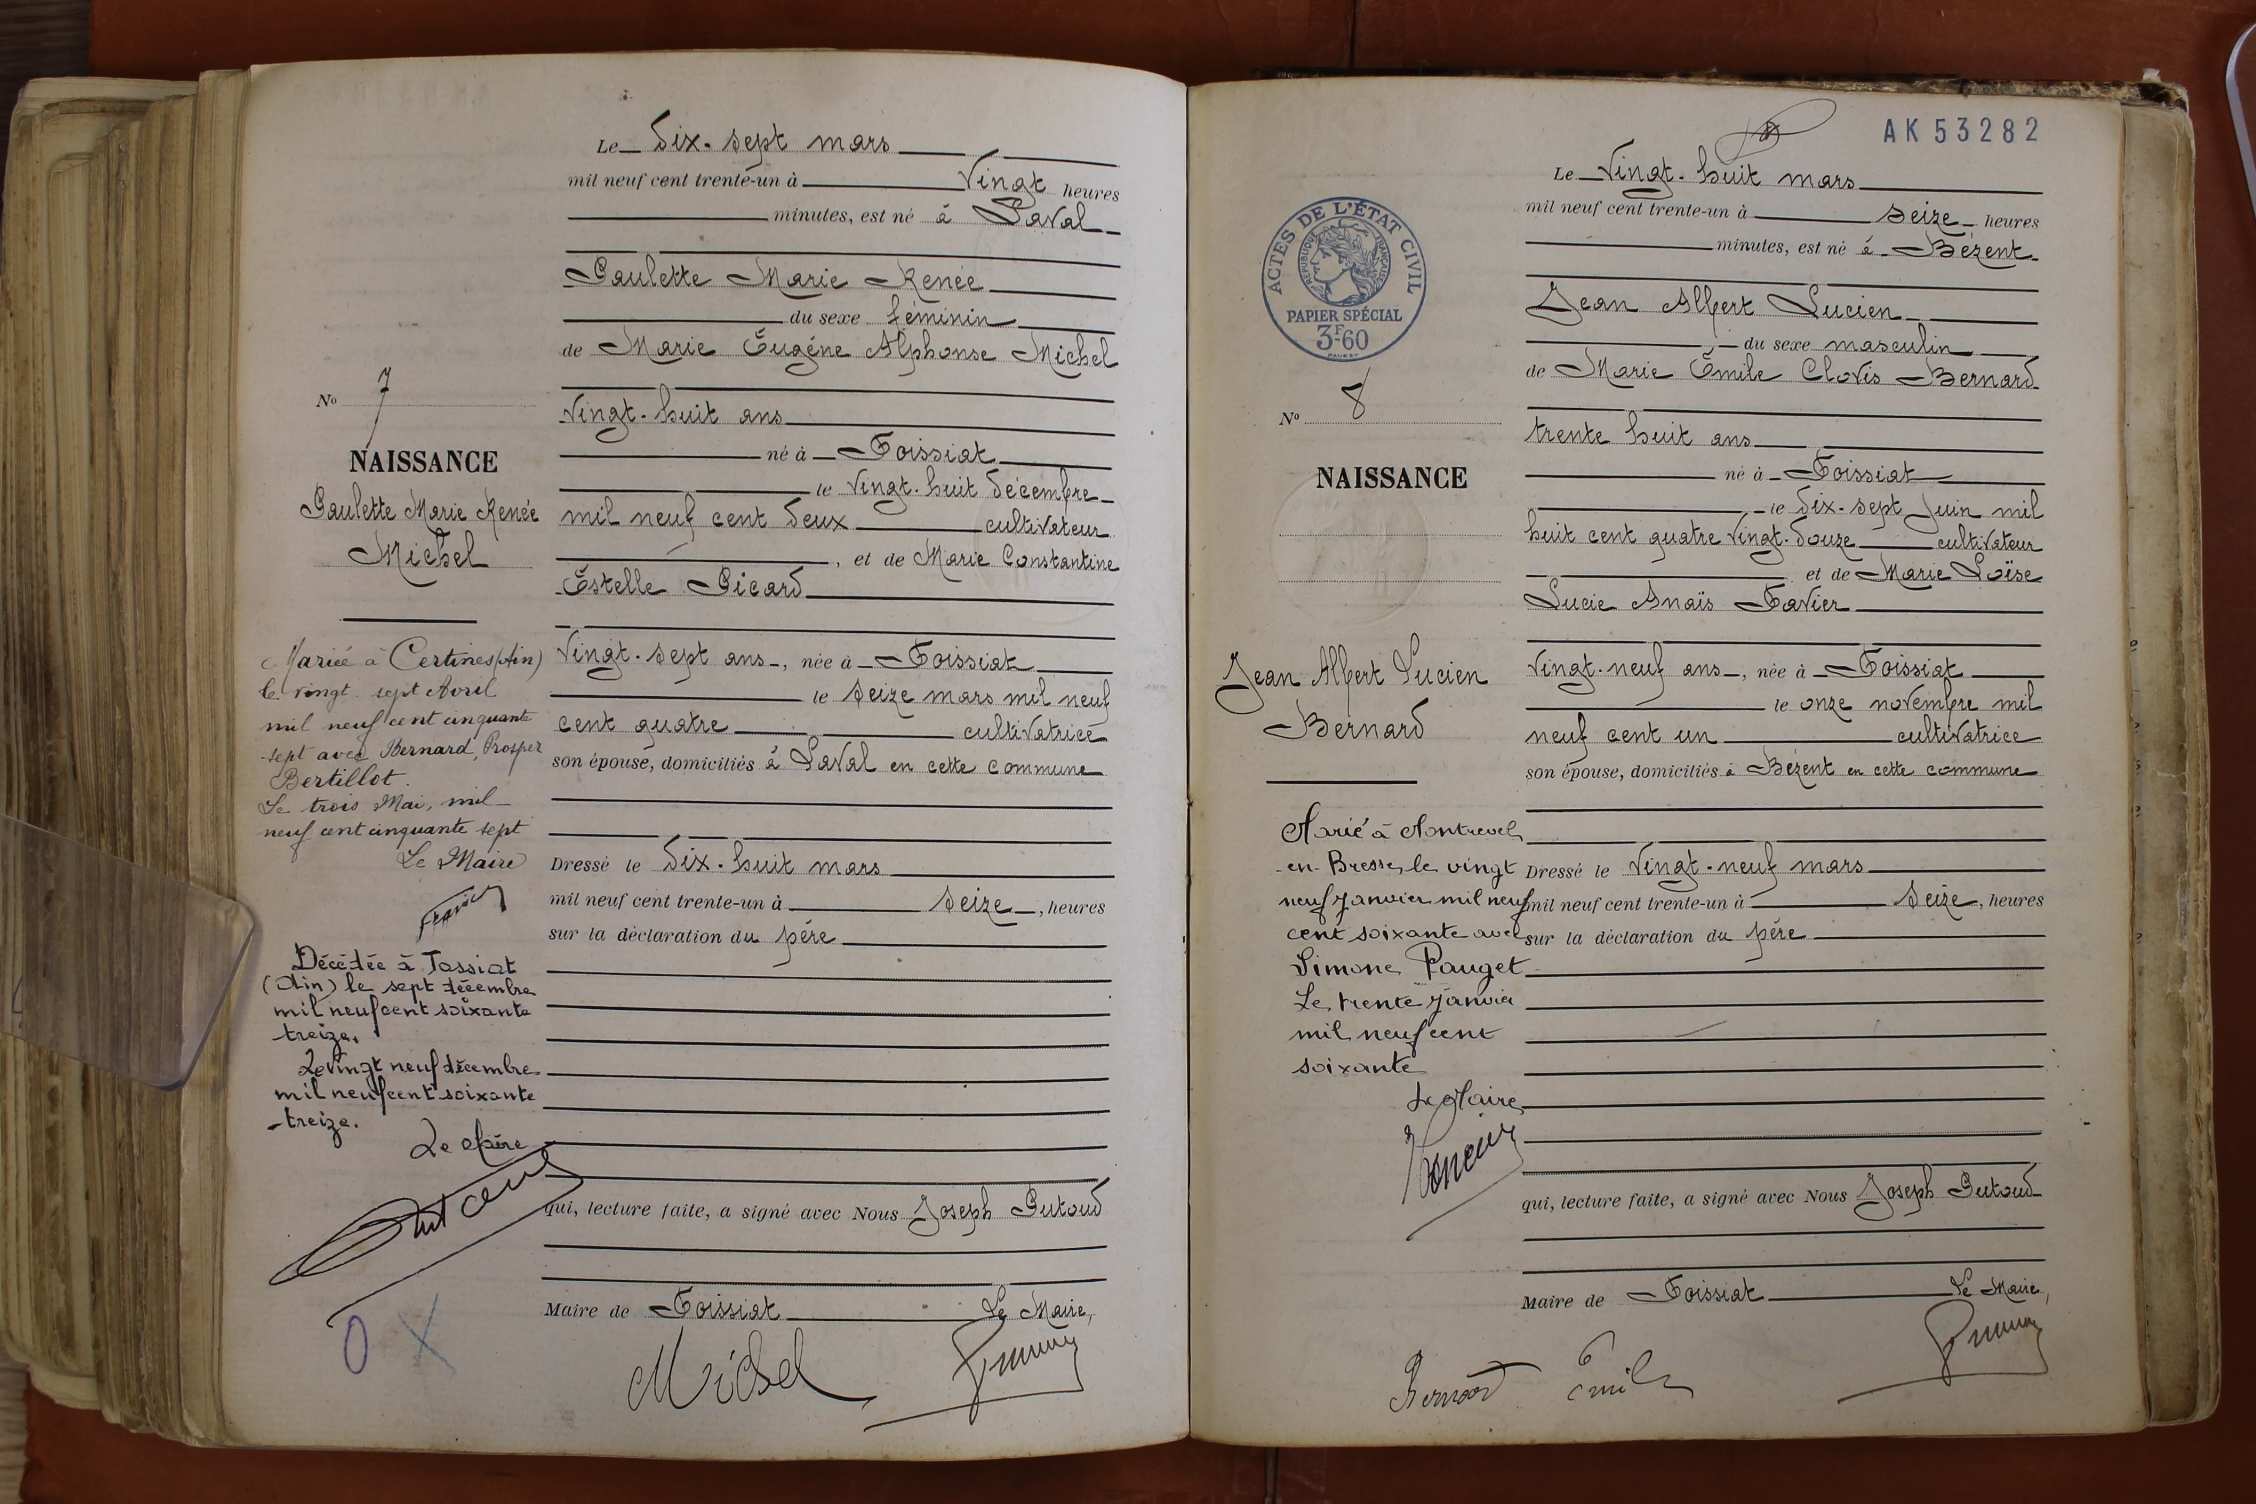 Le dix-sept mars
mil neuf cent trente-un à vingt heures
minutes, est né à Laval
Paulette Marie Renée
du sexe féminin
de Marie Eugène Alphonse Michel
vingt-huit ans
né à Foissiat
le vingt-huit décembre
mil neuf cent deux cultivateur
, et de Marie Constantine
Estelle Picard
vingt-sept ans, née à Foissiat
le seize mars mil neuf
cent quatre cultivatrice
son épouse, domiciliés à Laval en cette commune
Dressé le dix-huit mars
mil neuf cent trente-un à seize, heures
sur la déclaration du père
qui, lecture faite, a signé avec Nous Joseph Putoud
Maire de Foissiat Le Maire,
Michel
No 7
NAISSANCE
Paulette Marie Renée
Michel
Mariée à Certines (Ain)
le vingt sept Avril
mil neuf cent cinquante
sept avec Bernard, Prosper
Bertillot.
Le trois Mai, mil
neuf cent cinquante sept
Le Maire
Décédée à Jassiat
(Ain) le sept décembre
mil neuf cent soixante
treize.
Le Vingt neuf décembre
mil neuf cent soixante
-treize.
Le Maire
O X
AK 53282
Le vingt-huit mars
mil neuf cent trente-un à seize heures
minutes, est né à Bézent
Jean Albert Lucien
du sexe masculin
de Marie Émile Clovis Bernard
trente huit ans
né à Foissiat
le dix-sept Juin mil
huit cent quatre vingt-douze cultivateur
et de Marie Loïse
Lucie Anaïs Favier
vingt-neuf ans, née à Foissiat
le onze novembre mil
neuf cent un cultivatrice
son épouse, domiciliés à Bézent en cette commune
Dressé le vingt-neuf mars
mil neuf cent trente-un à seize, heures
sur la déclaration du père
qui, lecture faite, a signé avec Nous Joseph Putoud
Maire de Foissiat Le Maire,
Bernard Emile
ACTES DE L'ÉTAT CIVIL
RÉPUBLIQUE FRANÇAISE
PAPIER SPÉCIAL
3F60
No 8
NAISSANCE
Jean Albert Lucien
Bernard
Marié à Montrevel
-en-Bresse, le vingt
neuf janvier mil neuf
cent soixante avec
Simone Pauget
Le trente janvier
mil neuf cent
soixante
Le Maire